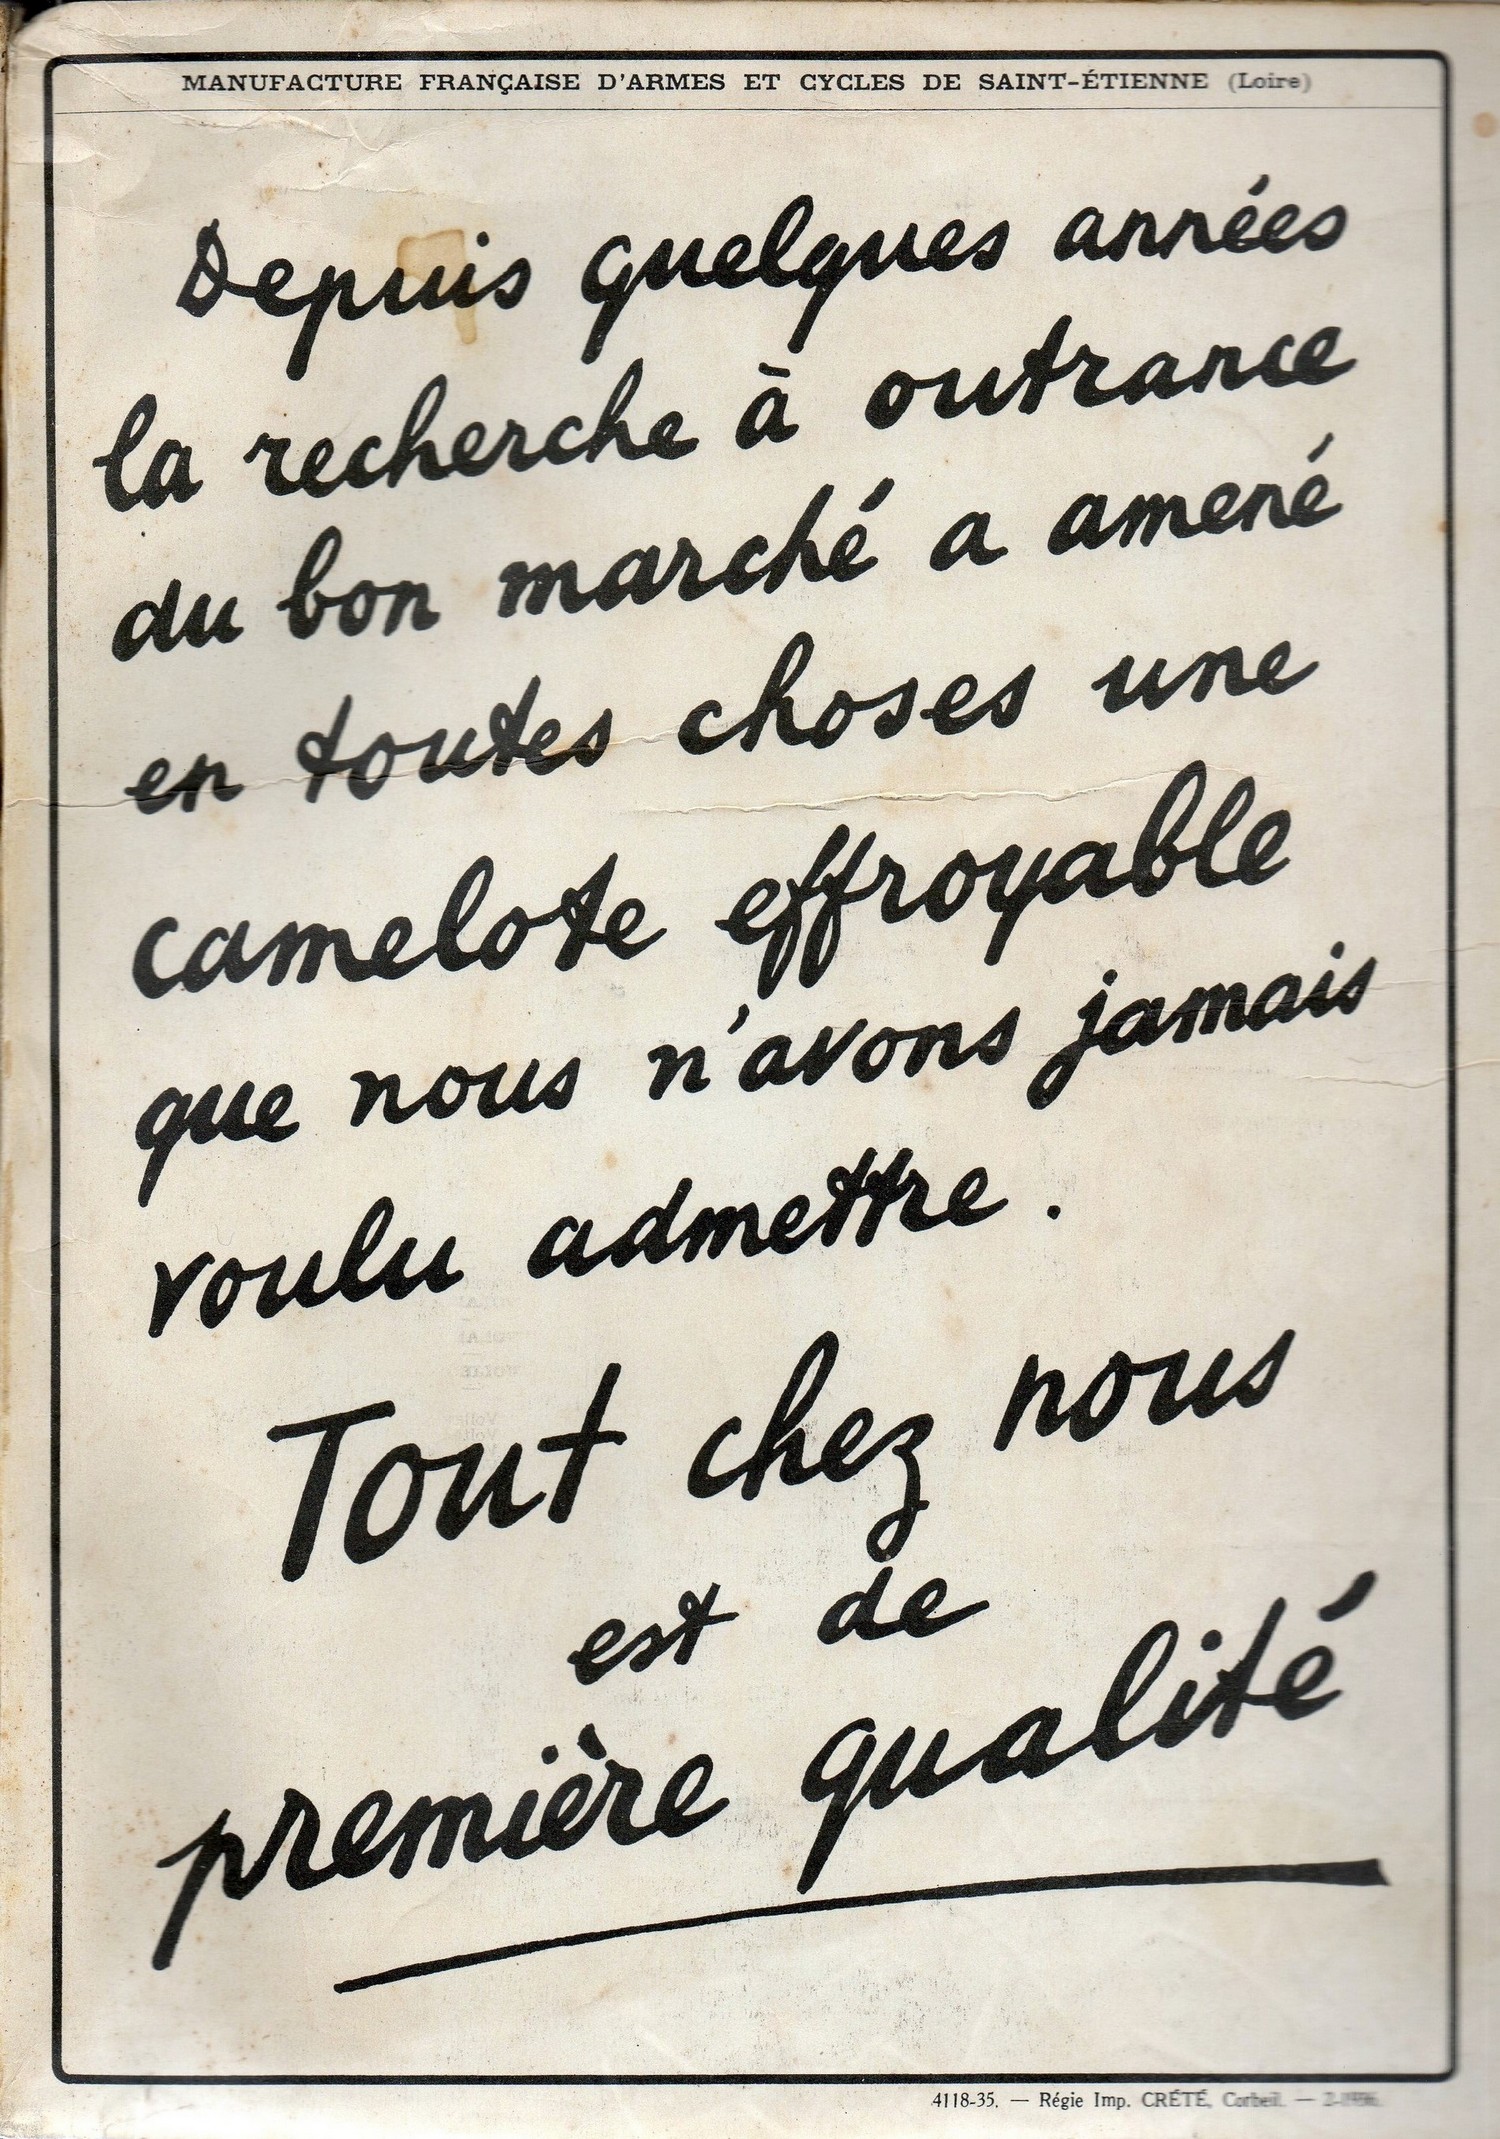 MANUFACTURE FRANÇAISE D'ARMES ET CYCLES DE SAINT-ÉTIENNE (Loire)
Depuis quelques années
la recherche à outrance
du bon marché a amené
en toutes choses une
camelote effroyable
que nous n'avons jamais
voulu admettre.
Tout chez nous
est de
première qualité
4118-35. — Régie Imp. CRÉTÉ, Corbeil. — 2-1936.